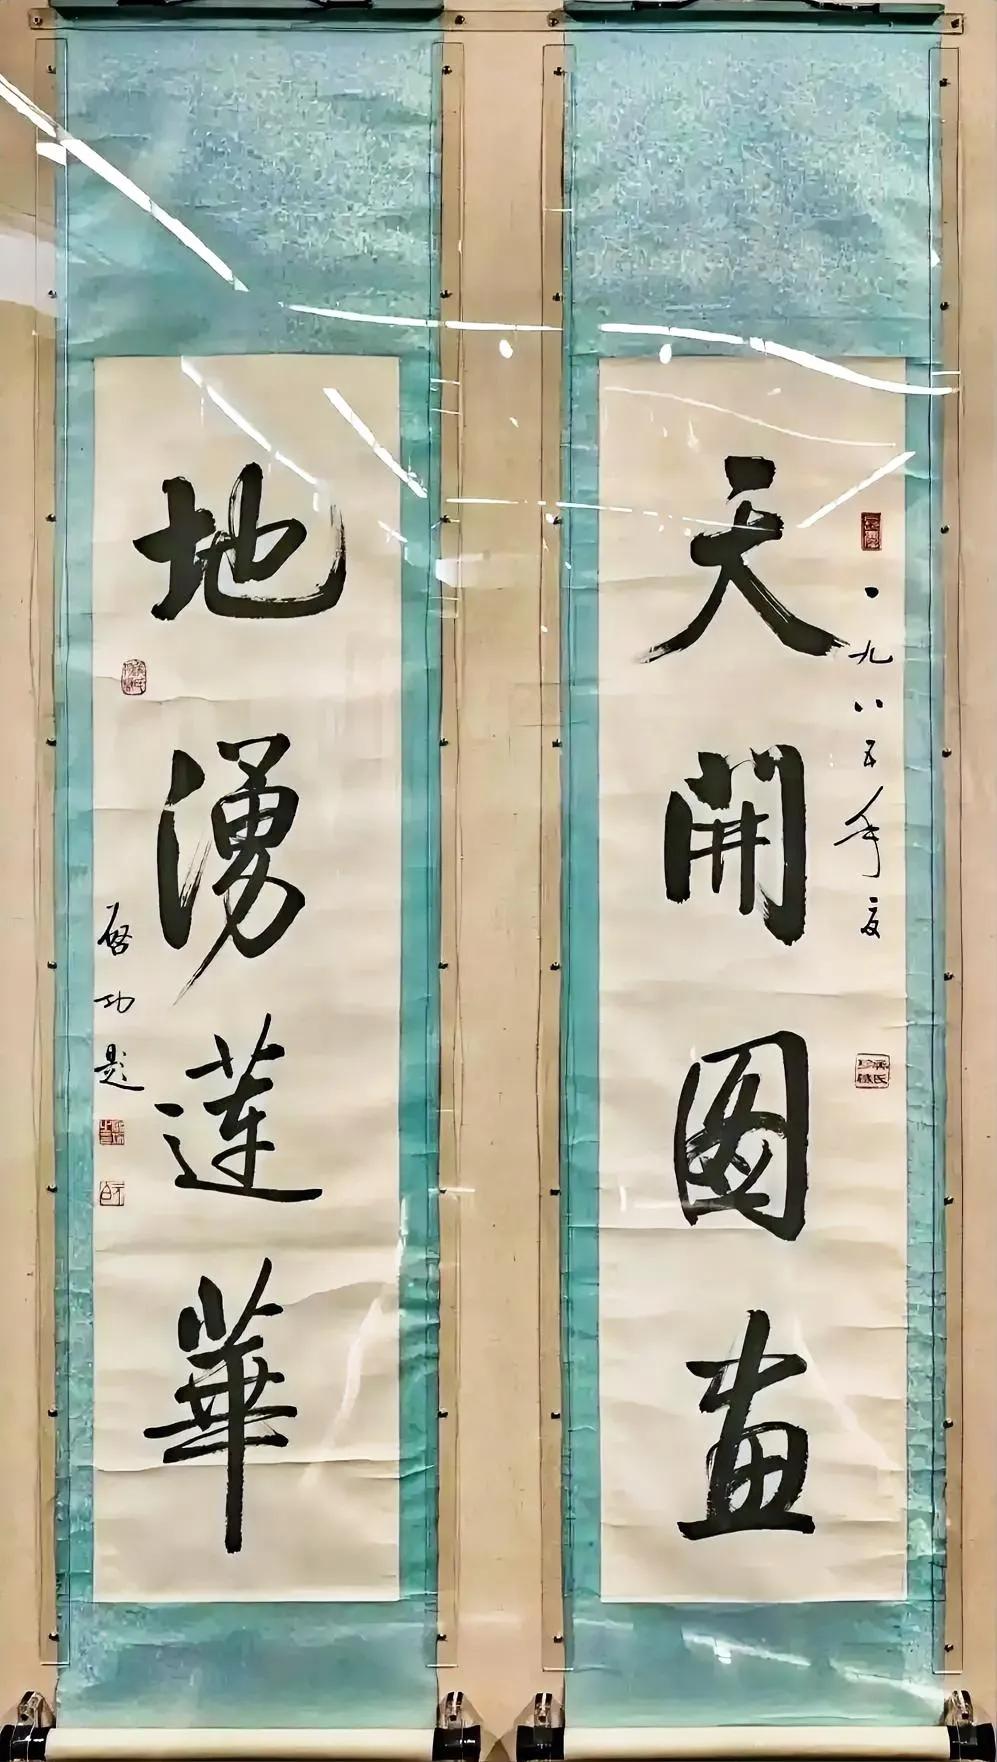 天開圖畫
一九八五年夏
地湧蓮華
啓功題